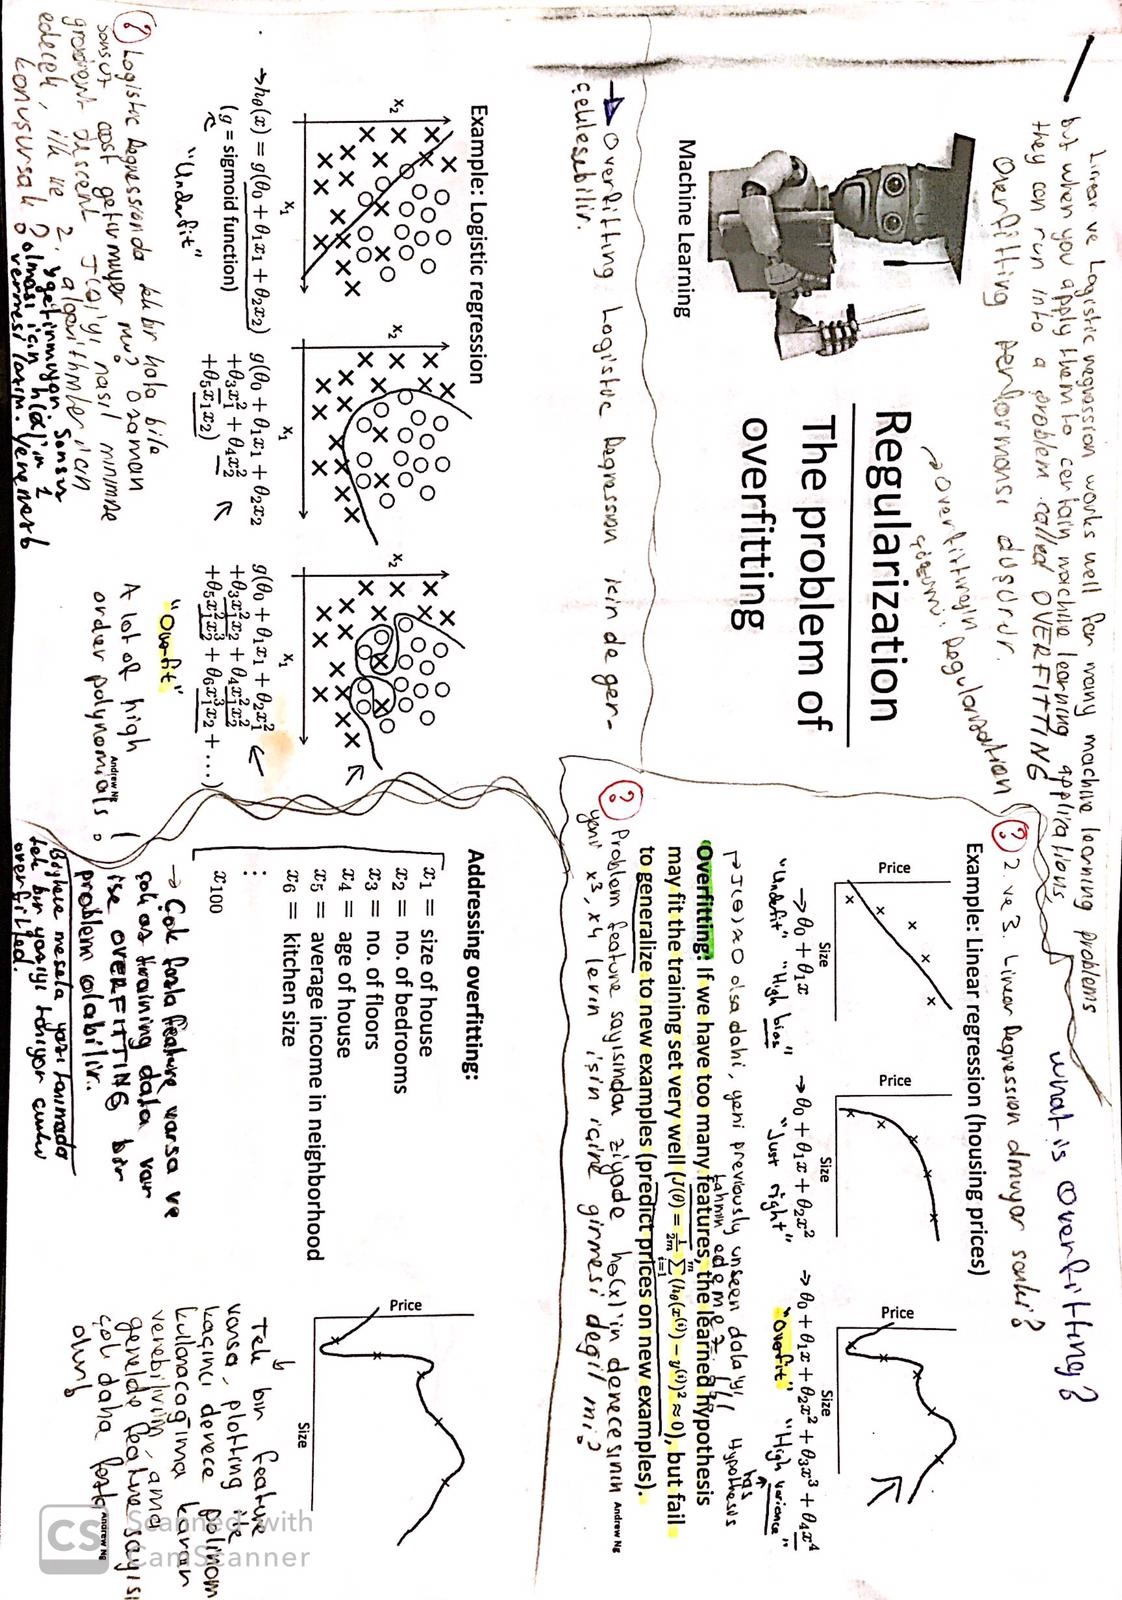 Linear ve Logistic regression works well for many machine learning problems
but when you apply them to certain machine learning applications
they can run into a problem called OVERFITTING
Overfitting performansı düşürür.
→ Overfitting'in
çözümü: Regularization
Regularization
The problem of
overfitting
Machine Learning
→ Overfitting Logistic Regression için de gen-
what is overfitting?
? 2. ve 3. Linear Regression olmuyor sanki?
Example: Linear regression (housing prices)
Price
Size
→ θ₀ + θ₁x
"Underfit" "High bias"
Price
Size
→ θ₀ + θ₁x + θ₂x²
"Just right"
Price
Size
→ θ₀ + θ₁x + θ₂x² + θ₃x³ + θ₄x⁴
"Overfit" "High variance"
has
→ J(θ) ≈ 0 olsa dahi, yeni previously unseen datayı Hypothesis
tahmin edemez
Overfitting: If we have too many features, the learned hypothesis
may fit the training set very well (J(θ) = 1/2m Σᵢ₌₁ᵐ (hθ(x⁽ⁱ⁾) − y⁽ⁱ⁾)² ≈ 0), but fail
to generalize to new examples (predict prices on new examples).
? Problem feature sayısından ziyade hθ(x)'in derecesinin
yani x³, x⁴ lerin işin içine girmesi değil mi?
Andrew Ng
Example: Logistic regression
x₂
x₁
→ hθ(x) = g(θ₀ + θ₁x₁ + θ₂x₂)
(g = sigmoid function)
"Underfit"
x₂
x₁
g(θ₀ + θ₁x₁ + θ₂x₂
+θ₃x₁² + θ₄x₂²
+θ₅x₁x₂)
x₂
x₁
g(θ₀ + θ₁x₁ + θ₂x₁²
+θ₃x₁²x₂ + θ₄x₁²x₂²
+θ₅x₁²x₂³ + θ₆x₁³x₂ + …)
"Overfit"
A lot of high
order polynomials!
Andrew Ng
? Logistic Regressionda tek bir hata bile
sonsuz cost getirmiyor mu? O zaman
gradient descent J(θ)'yı nasıl minimize
edecek, ilk ve 2. algorithmler için
konuşursak?
getirmiyor. Sonsuz
olması için h(x)'in 1
vermesi lazım.
Addressing overfitting:
x₁ = size of house
x₂ = no. of bedrooms
x₃ = no. of floors
x₄ = age of house
x₅ = average income in neighborhood
x₆ = kitchen size
⋮
x₁₀₀
Price
Size
→ Çok fazla feature varsa ve
çok az training data var
ise OVERFITTING bir
problem olabilir.
mesela yazı tanımada
tek bir yazıyı tanıyor çünkü
overfitted.
Tek bir feature
varsa, plotting ile
kaçıncı derece polinom
kullanacağıma karar
verebilirim, ama
genelde feature sayısı
çok daha fazla
olur
Andrew Ng
CS
Scanned with
CamScanner